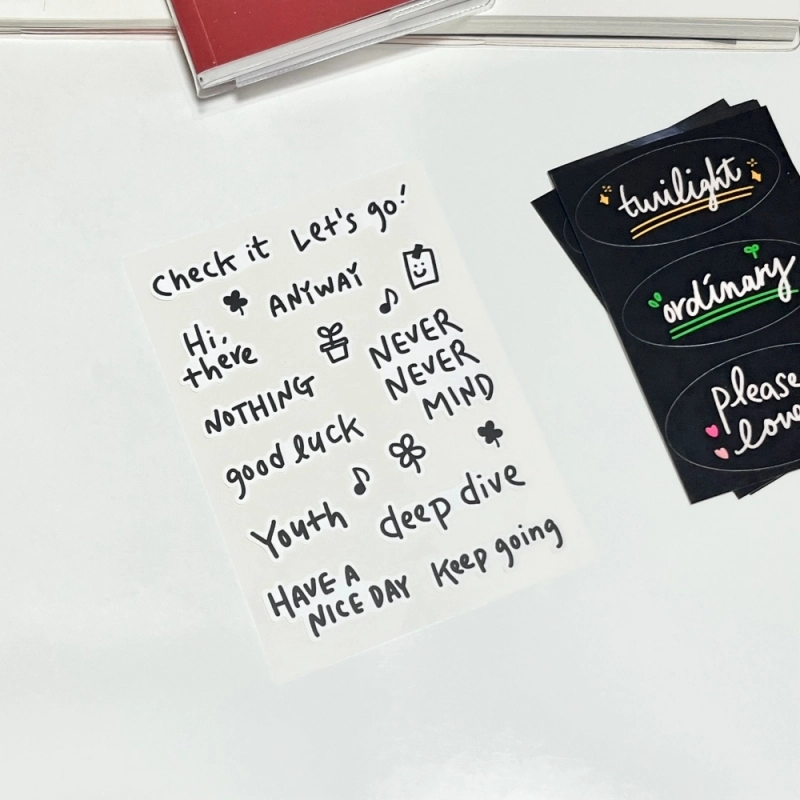 Check it Let's go!
ANYWAY
Hi,
there
NEVER
NEVER
MIND
NOTHING
good luck
Youth
deep dive
HAVE A
NICE DAY
Keep going
twilight
ordinary
please
love